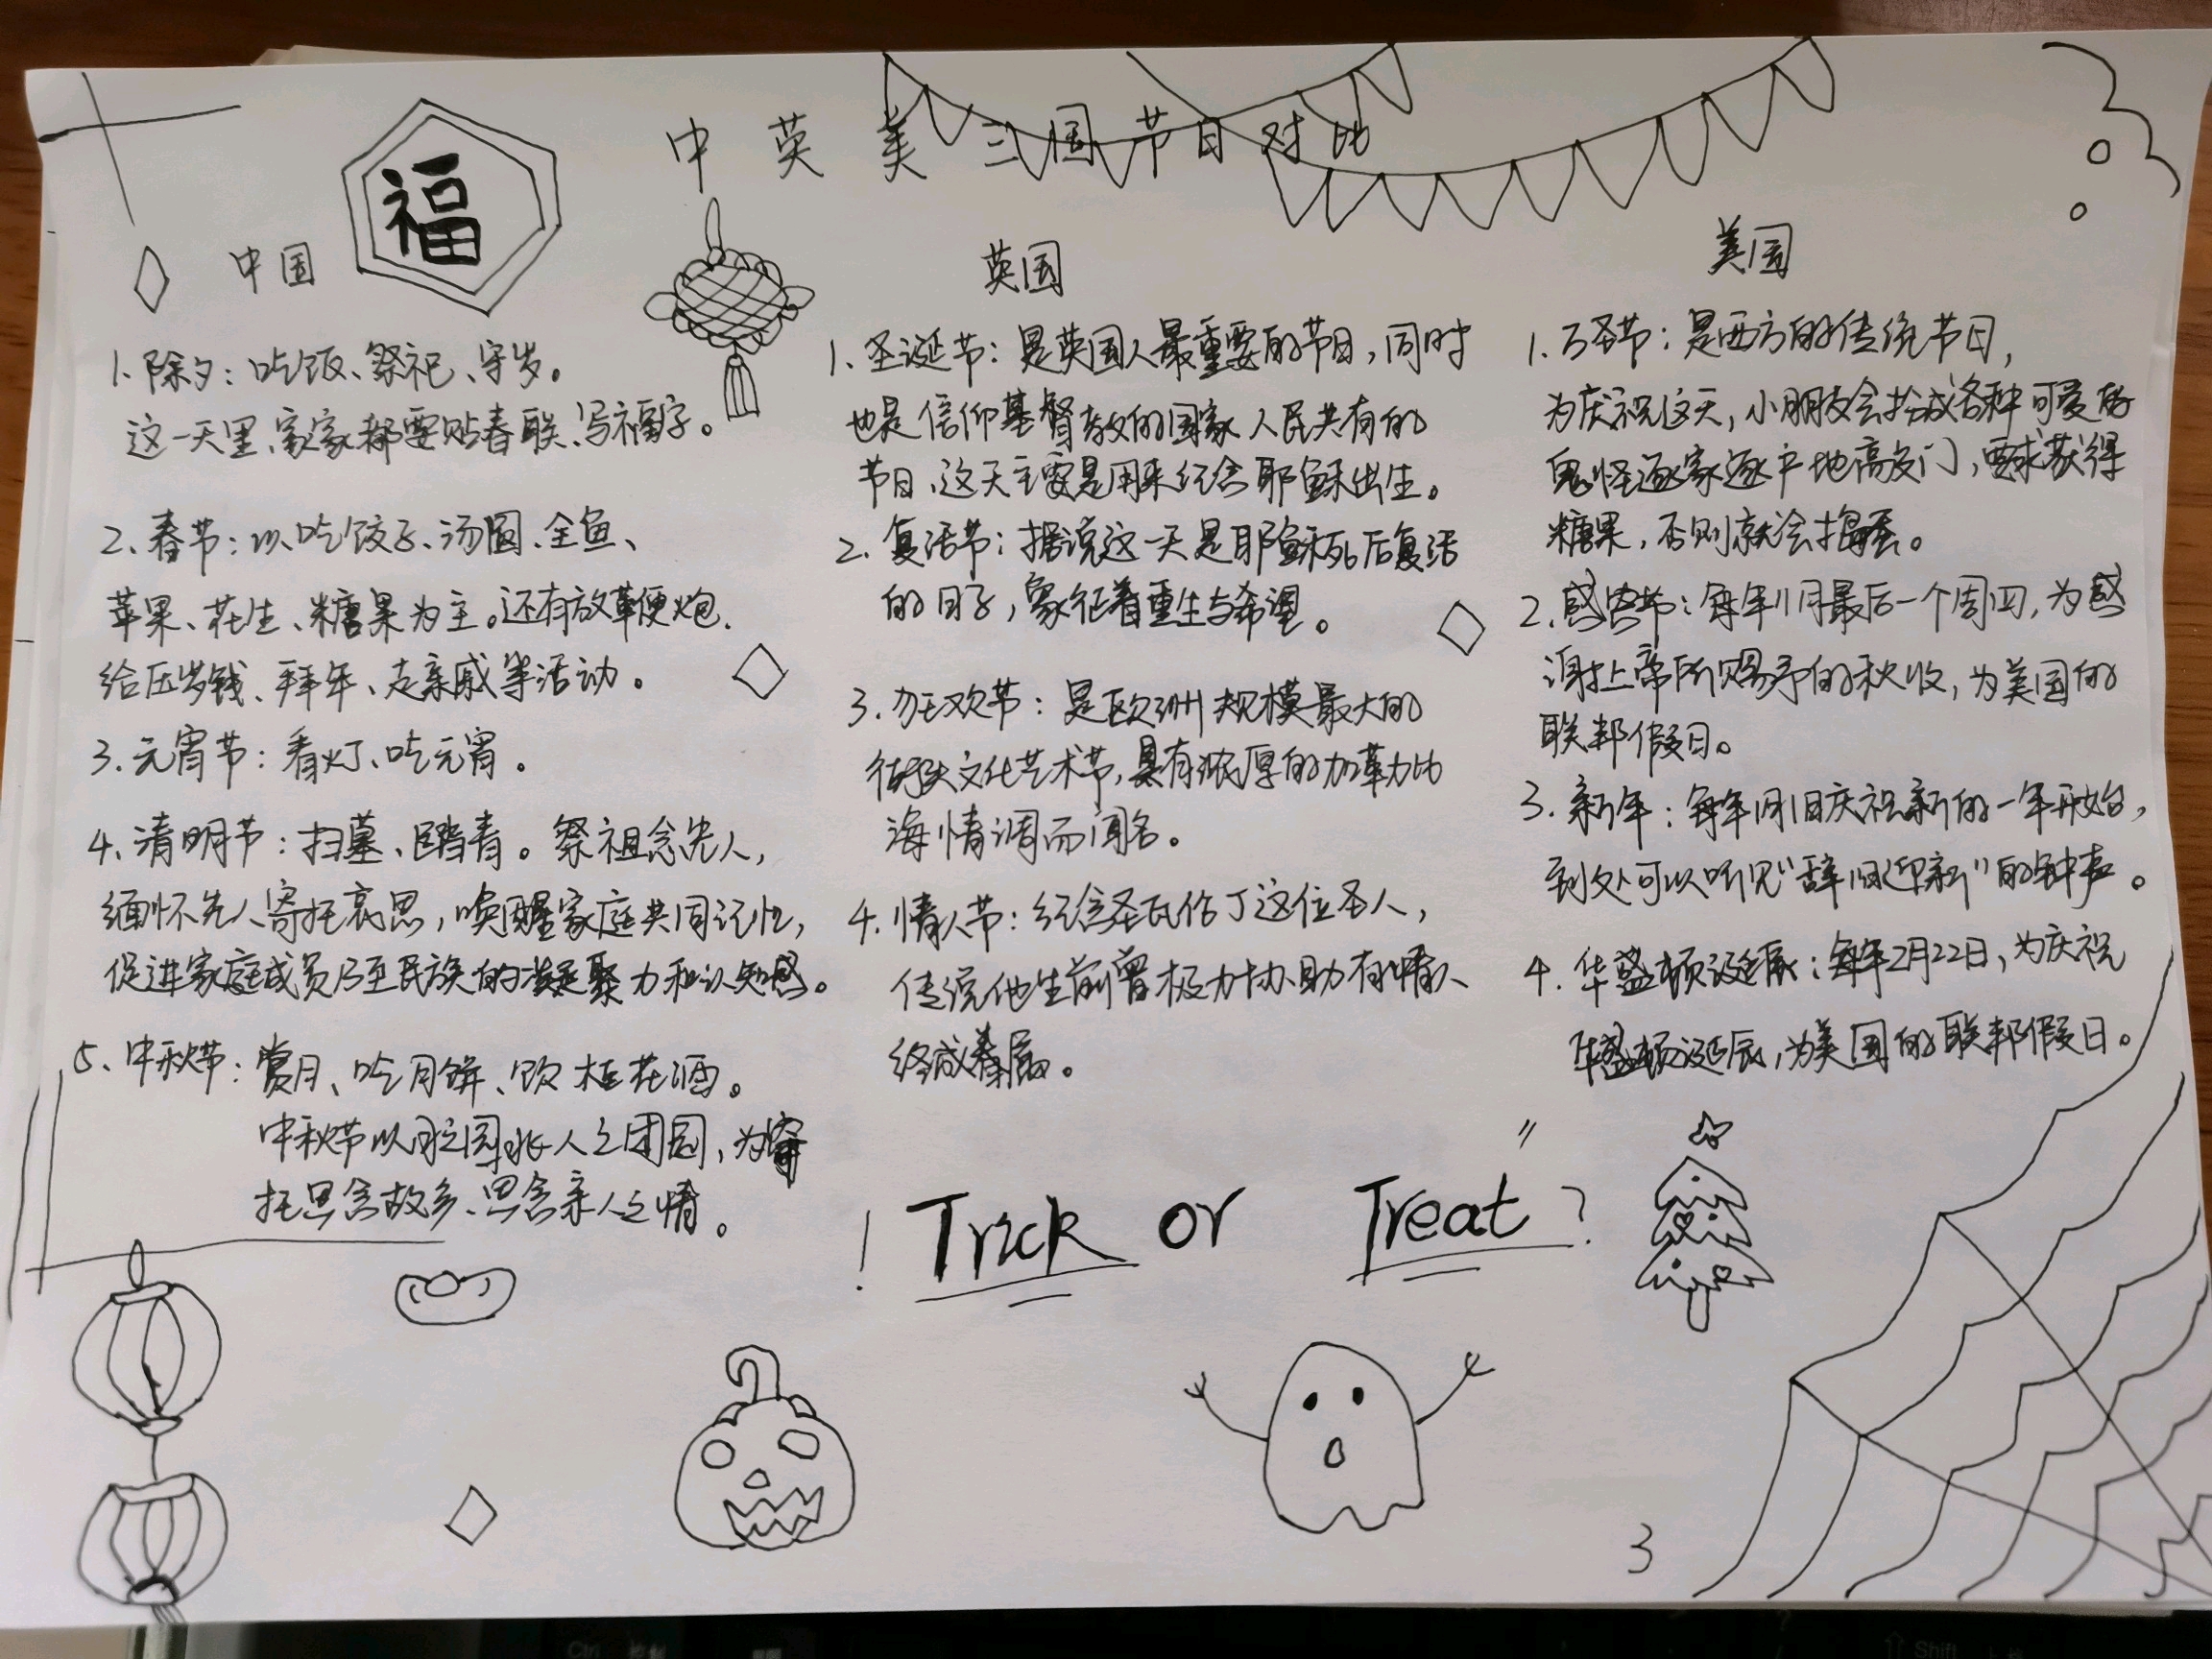 中英美三国节日对比
福
中国
1.除夕：吃饭、祭祀、守岁。
这一天里、家家都要贴春联、写福字。
2、春节：以吃饺子、汤圆、全鱼、
苹果、花生、糖果为主。还有放鞭炮.
给压岁钱、拜年、走亲戚等活动。
3.元宵节：看灯、吃元宵。
4、清明节：扫墓、踏青。祭祖念先人，
缅怀先人寄托哀思，唤醒家庭共同记忆，
促进家庭成员乃至民族的凝聚力和认知感。
5、中秋节：赏月、吃月饼、饮桂花酒。
中秋节以月之圆兆人之团圆，为寄
托思念故乡、思念亲人之情。
英国
1.圣诞节：是英国人最重要的节日，同时
也是信仰基督教的国家人民共有的
节日、这天主要是用来纪念耶稣出生。
2.复活节：据说这一天是耶稣死后复活
的日子，象征着重生与希望。
3.狂欢节：是欧洲规模最大的
街头文化艺术节，具有浓厚的加勒比
海情调而闻名。
4.情人节：纪念圣瓦伦丁这位圣人，
传说他生前曾极力协助有情人
终成眷属。
美国
1.万圣节：是西方的传统节日，
为庆祝这天，小朋友会扮成各种可爱的
鬼怪逐家逐户地敲门，要求获得
糖果，否则就会捣蛋。
2.感恩节：每年11月最后一个周四，为感
谢上帝所赐予的秋收，为美国的
联邦假日。
3.新年：每年1月1日庆祝新的一年开始，
到处可以听见"辞旧迎新"的钟声。
4.华盛顿诞辰：每年2月22日，为庆祝
华盛顿诞辰，为美国的联邦假日。
! Trick or Treat ? "
3
Ctrl
Shift